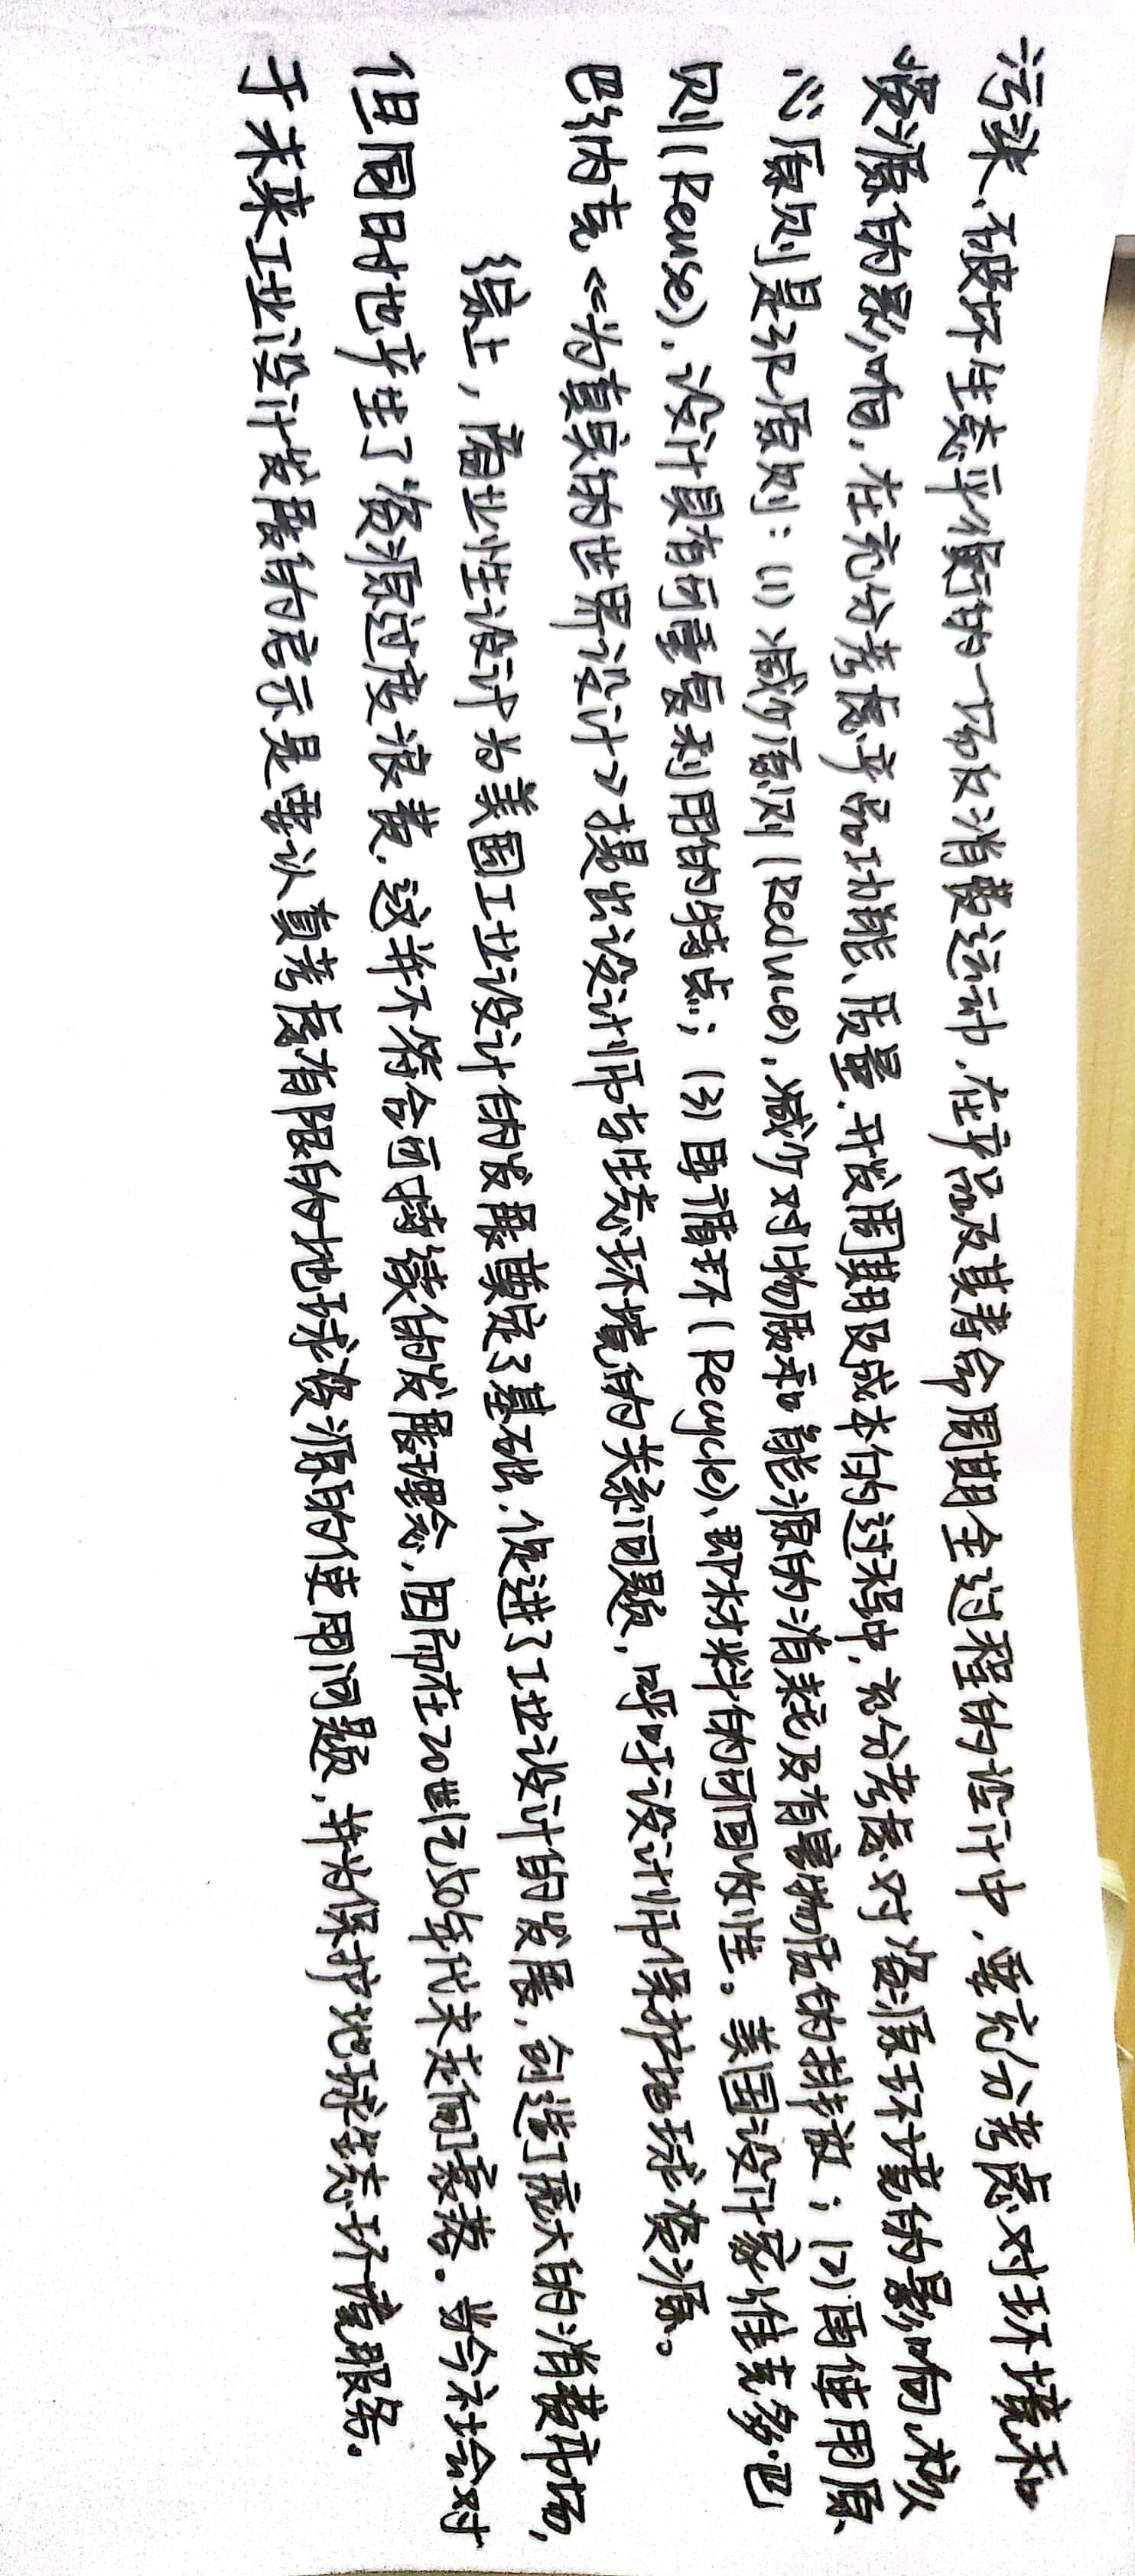 污染、不破坏生态平衡的一场反消费运动。在产品及其寿命周期全过程的设计中，要充分考虑对环境和
资源的影响，在充分考虑产品功能、质量、开发周期及成本的过程中，充分考虑对资源环境的影响，核
心原则是3R原则：(1)减少原则(Reduce)，减少对物质和能源的消耗及有害物质的排放；(2)再使用原
则(Reuse)，设计具有可重复利用的特点；(3)再循环(Recycle)，即材料的可回收性。美国设计家维克多·巴
巴纳克《为真实的世界设计》提出设计师与生态环境的关系问题，呼吁设计师保护地球资源。
综上，商业性设计为美国工业设计的发展奠定了基础，促进了工业设计的发展，创造了庞大的消费市场，
但同时也产生了资源过度浪费，这并不符合可持续的发展理念，因而在20世纪50年代末走向衰落。当今社会对
于未来工业设计发展的启示是要认真考虑有限的地球资源的使用问题，并为保护地球生态环境服务。